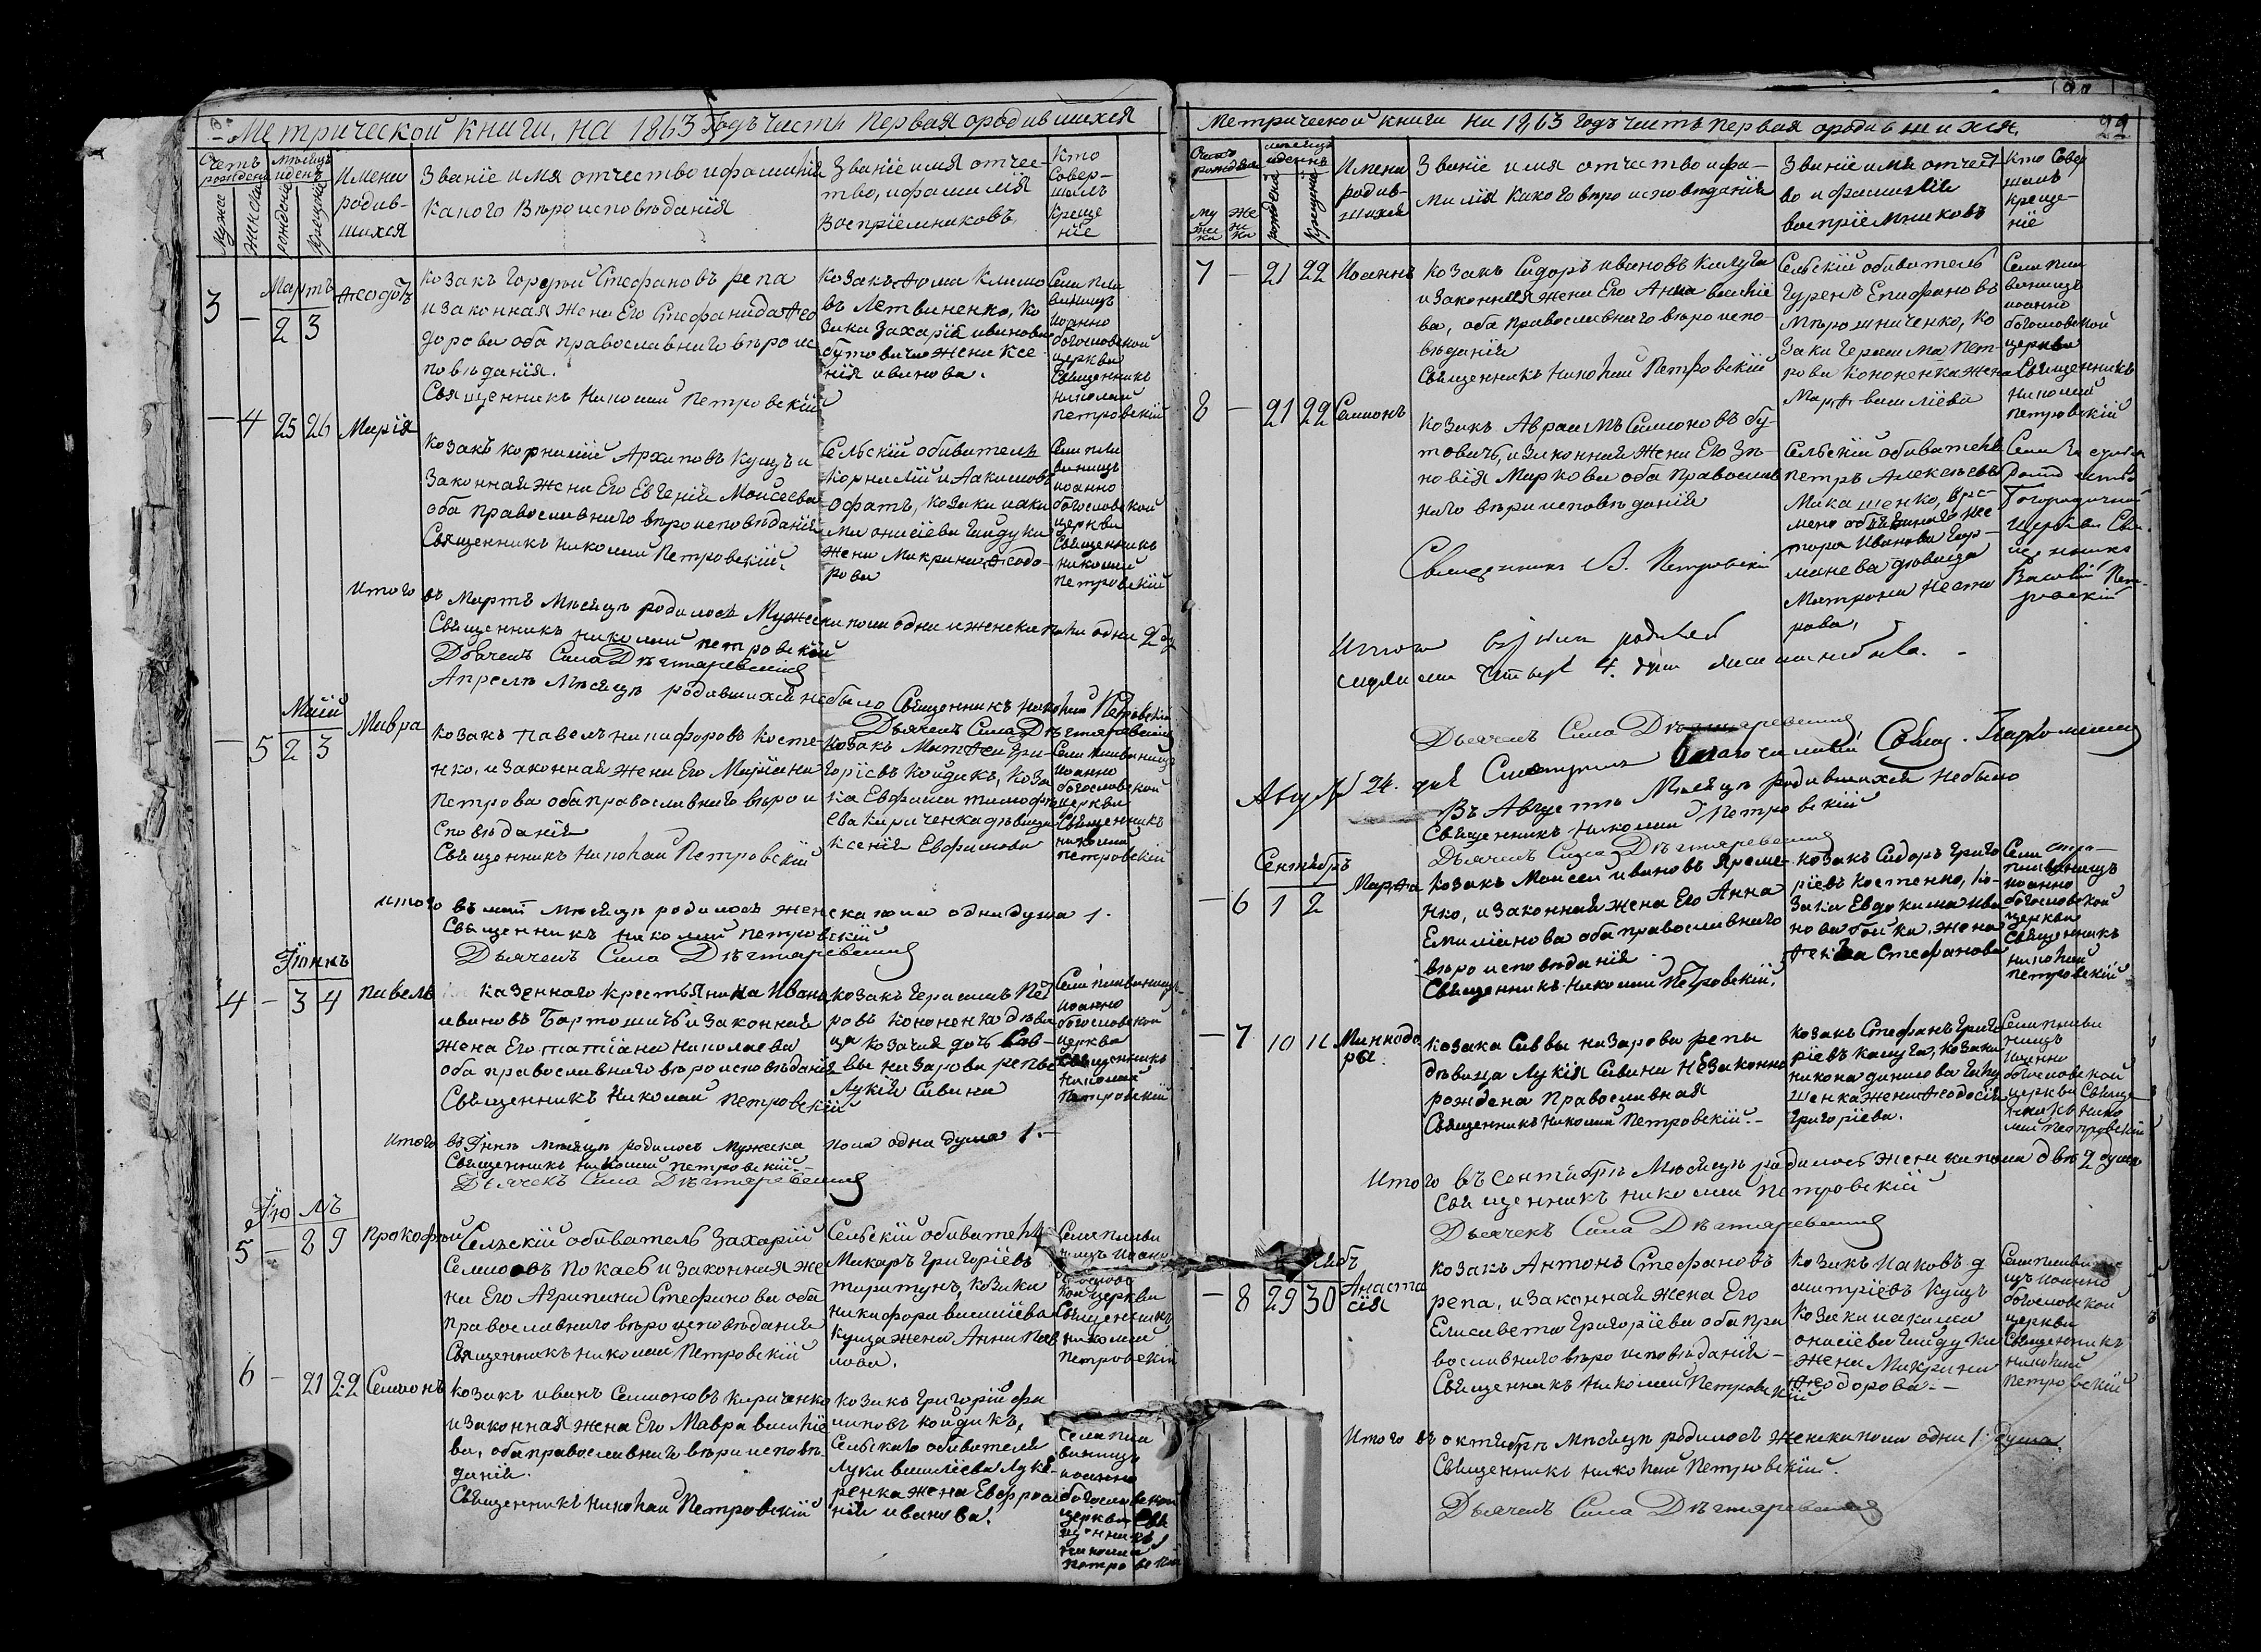 Метрической книги, на 1863 годъ часть первая о родившихся
Счетъ рожден
Мѣсяцъ и день
Мужес
Женска
рожденіе
Крещеніе
Имена
родив-
шихся
Званіе имя отчество и фамилія
какого вѣроисповѣданія
Званіе имя отчес-
тво, и фамилія
воспріемниковъ
Кто
совер-
шалъ
креще
ніе
Мартъ
3 - 2 3 Ѳеодотъ
Козакъ Гордѣй Стефановъ репа
и законная жена Его Стефанида Ѳео
дорова оба православнаго вѣроис
повѣданія.
Священникъ Николай Петровскій
Козакъ Ѳома Климо
въ Летвиненко, ко
зака Захарія иванова
бутовича жена Ксе
нія иванова.
Села Пли
винищъ
Иоанно
богословской
церкви
Священникъ
Николай
Петровскій
- 4 25 26 Марія
Козакъ Корнилій Архиповъ Кущъ и
законная жена Его Евгенія Моисеева
оба православнаго вѣроисповѣданія
Священникъ Николай Петровскій.
Сельскій обиватель
Корнилій Иакимовъ
Офатъ, козака иаки
ма онисіева Гайдука
жена Макрина Ѳеодо-
рова
Села пли
винищъ
иоанно
богословской
церкви
Священникъ
николай
петровскій
Итого въ Мартѣ Мѣсяцѣ родилось Мужеска пола одна и женска пола одна 2 ду
Священникъ николай петровскій
Дьячекъ Сила Дѣгтяревскій
Апрель Мѣсяцъ родившихся небыло Священникъ Николай Петровскій
Дьячекъ Сила Дѣгтяревскій
Май
- 5 2 3 Мавра
Козакъ павелъ никифоровъ Косте-
нко, и законная жена Его Маріана
Петрова оба православнаго вѣрои
сповѣданія
Священникъ Николай Петровскій
Козакъ Матѳей Гри-
горіевъ Койдакъ, Коза
ка Евфима тимофе
ева Кириченка дѣвица
Ксенія Евфимова
Села пливинищъ
Иоанно
богословской
церкви
Священникъ
николай
петровскій
итого въ маи мѣсяцѣ родилось женска пола одна душа 1.
Священникъ николай петровскій
Дьячекъ Сила Дѣгтяревскій
Іюнь
4 - 3 4 павелъ
казенного крестьянина Иванъ
ивановъ Бартошичъ и законная
жена Его татіана Николаева
оба православнаго вѣроисповѣданія
Священникъ Николай петровскій
козакъ Герасимъ Пет
ровъ Кононенко дѣви
ца козачая дочь Сав-
вы назарова репы
Лукія Савина
Села пливинищъ
иоанно
богословской
церкви
Священникъ
Николай
петровскій
итого въ Іюнѣ мѣсяцѣ родилось Мужеска пола одна душа 1.-
Священникъ Николай петровскій.-
Дьячекъ Сила Дѣгтяревскій
Іюль
5 - 8 9 Прокофій
Сельскій обиватель Захарій
Семионовъ Покаев и законная же
на Его Агрипина Стефанова оба
православнаго вѣроисповѣданія
Священникъ николай Петровскій
Сельскій обиватель
Макаръ Григоріевъ
таратунъ, козака
никифора василіева
Куща жена Анна Пав
лова.
Села пливи
нищъ Иоанно
кой церкви
Священникъ
николай
петровскій
6 - 21 22 Семионъ
Козакъ иванъ Семионовъ Кириченко
и законная жена Его Мавра василіе
ва, оба православнаго вѣроисповѣ
данія.
Священникъ Николай Петровскій
Козакъ Григорій фи
липовъ койдакъ,
Сельскаго обивателя
Луки василіева Луке
ренка жена Евфроси
нія иванова.
Села пли
винищъ
иоанно
богословской
церкви Свя
щенникъ
николай
петровскій
Метрической книги на 1863 годъ часть первая о родившихся.
22
Счетъ рожден
мѣсяцъ и день
му
жес
ка
же
нс
ка
рожденіе
Крещеніе
Имена
родив-
шихся
Званіе имя отчество и фа-
милія какого вѣроисповѣданія
Званіе имя отчест
во и фамилія
воспріемниковъ
Кто совер
шалъ
креще-
ніе
7 - 21 22 Иоаннъ
Козакъ Сидоръ ивановъ Калуга
и законная жена Его Анна василіе
ва, оба православнаго вѣроиспо-
вѣданія
Священникъ Николай Петровскій
Сельскій обиватель
Гурей Епифановъ
Мѣрошниченко, ко
зака Герасима Пет-
рова Кононенка жена
Марѳа василіева
Села пли
винищъ
иоанно
богословской
церкви
Священникъ
Николай
петровскій
8 - 21 22 Семионъ
Козакъ Авраамъ Симоновъ бу-
товичъ, и законная жена Его Зѣ-
новія Маркова оба православ
наго вѣроисповѣданія
Священникъ В. Петровскій
Сельскій обиватель
петръ Алексѣевъ
Макашенко, вре-
мено обязанаго Нес
тора Иванова Гер-
манева дѣвица
Матрона Несте
рова,
Села
Рождество
Богородичной
Церкви Свя-
щенникъ
Василій Пет-
ровскій
Итого въ іюлѣ родилось
четыре 4. души
Дьячекъ Сила Дѣгтяревскій
Август 24. дня Смотрилъ благочинный Свящ. Пархоменко
Въ Августѣ Мѣсяцѣ родившихся небыло
Священникъ Николай Петровскій
Дьячекъ Сила Дѣгтяревскій
Сентябрь
- 6 1 2 Марѳа
Козакъ Моисей ивановъ Яреме-
нко, и законная жена Его Анна
Емиліанова оба православнаго
вѣроисповѣданія.
Священникъ Николай Петровскій.
Козакъ Сидоръ Григо
ріевъ Костенко, ко-
зака Евдокима ива
нова бойка, жена
Ѳекла Стефанова
Села
пливинищъ
иоанно
богословской
церкви
Священникъ
николай
петровскій
- 7 10 11 Минкодо
ра.
Козака Саввы назарова репы
дѣвица Лукія Савина незаконно
рождена православная
Священникъ Николай Петровскій.-
Козакъ Стефанъ Григо
ріевъ Калуга, козака
никона данилова
шенка жена Ѳеодосія
Григоріева.
Села пливи
нищъ
Иоанно
богословской
церкви Священ
никъ Нико
лай петровскій
Итого въ сентябрѣ Мѣсяцѣ родилось женска пола двѣ 2 души
Священникъ николай петровскій
Дьячекъ Сила Дѣгтяревскій
- 8 29 30 Анаста
сія
Козакъ Антонъ Стефановъ
репа, и законная жена Его
Елисавета Григоріева оба пра
вославнаго вѣроисповѣданія -
Священникъ Николай Петровскій
Козакъ Иаковъ д
митріевъ Кущъ
Козака иакима
онисіева Гайдука
жена Макрина
Ѳеодорова.-
Села пливи
щъ иоанно
богословской
церкви
Священникъ
николай
петровскій
Итого въ октябрѣ мѣсяцѣ родилось женска пола одна 1. душа.
Священникъ николай Петровскій.
Дьячекъ Сила Дѣгтяревскій